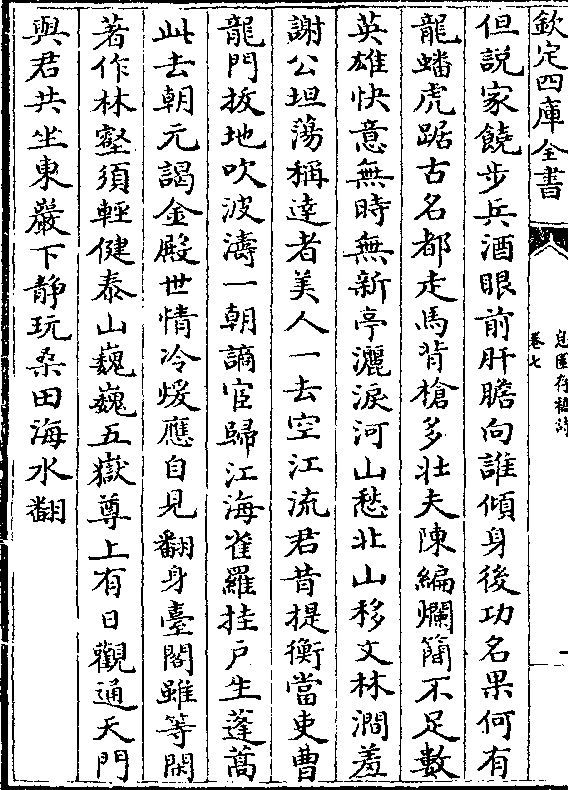 欽定四庫全書
卷七
但説家饒步兵酒眼前肝膽向誰傾身後功名果何有
龍蟠虎踞古名都走馬背槍多壯夫陳編爛簡不足數
英雄快意無時無新亭灑淚河山愁北山移文林澗羞
謝公坦蕩稱達者美人一去空江流君昔提衡當吏曹
龍門拔地吹波濤一朝謫宦歸江海雀羅挂户生蓬蒿
此去朝元謁金殿世情冷煖應自見翻身臺閣雖等閑
著作林壑須輕健泰山巍巍五嶽尊上有日觀通天門
與君共坐東巖下静玩桑田海水翻